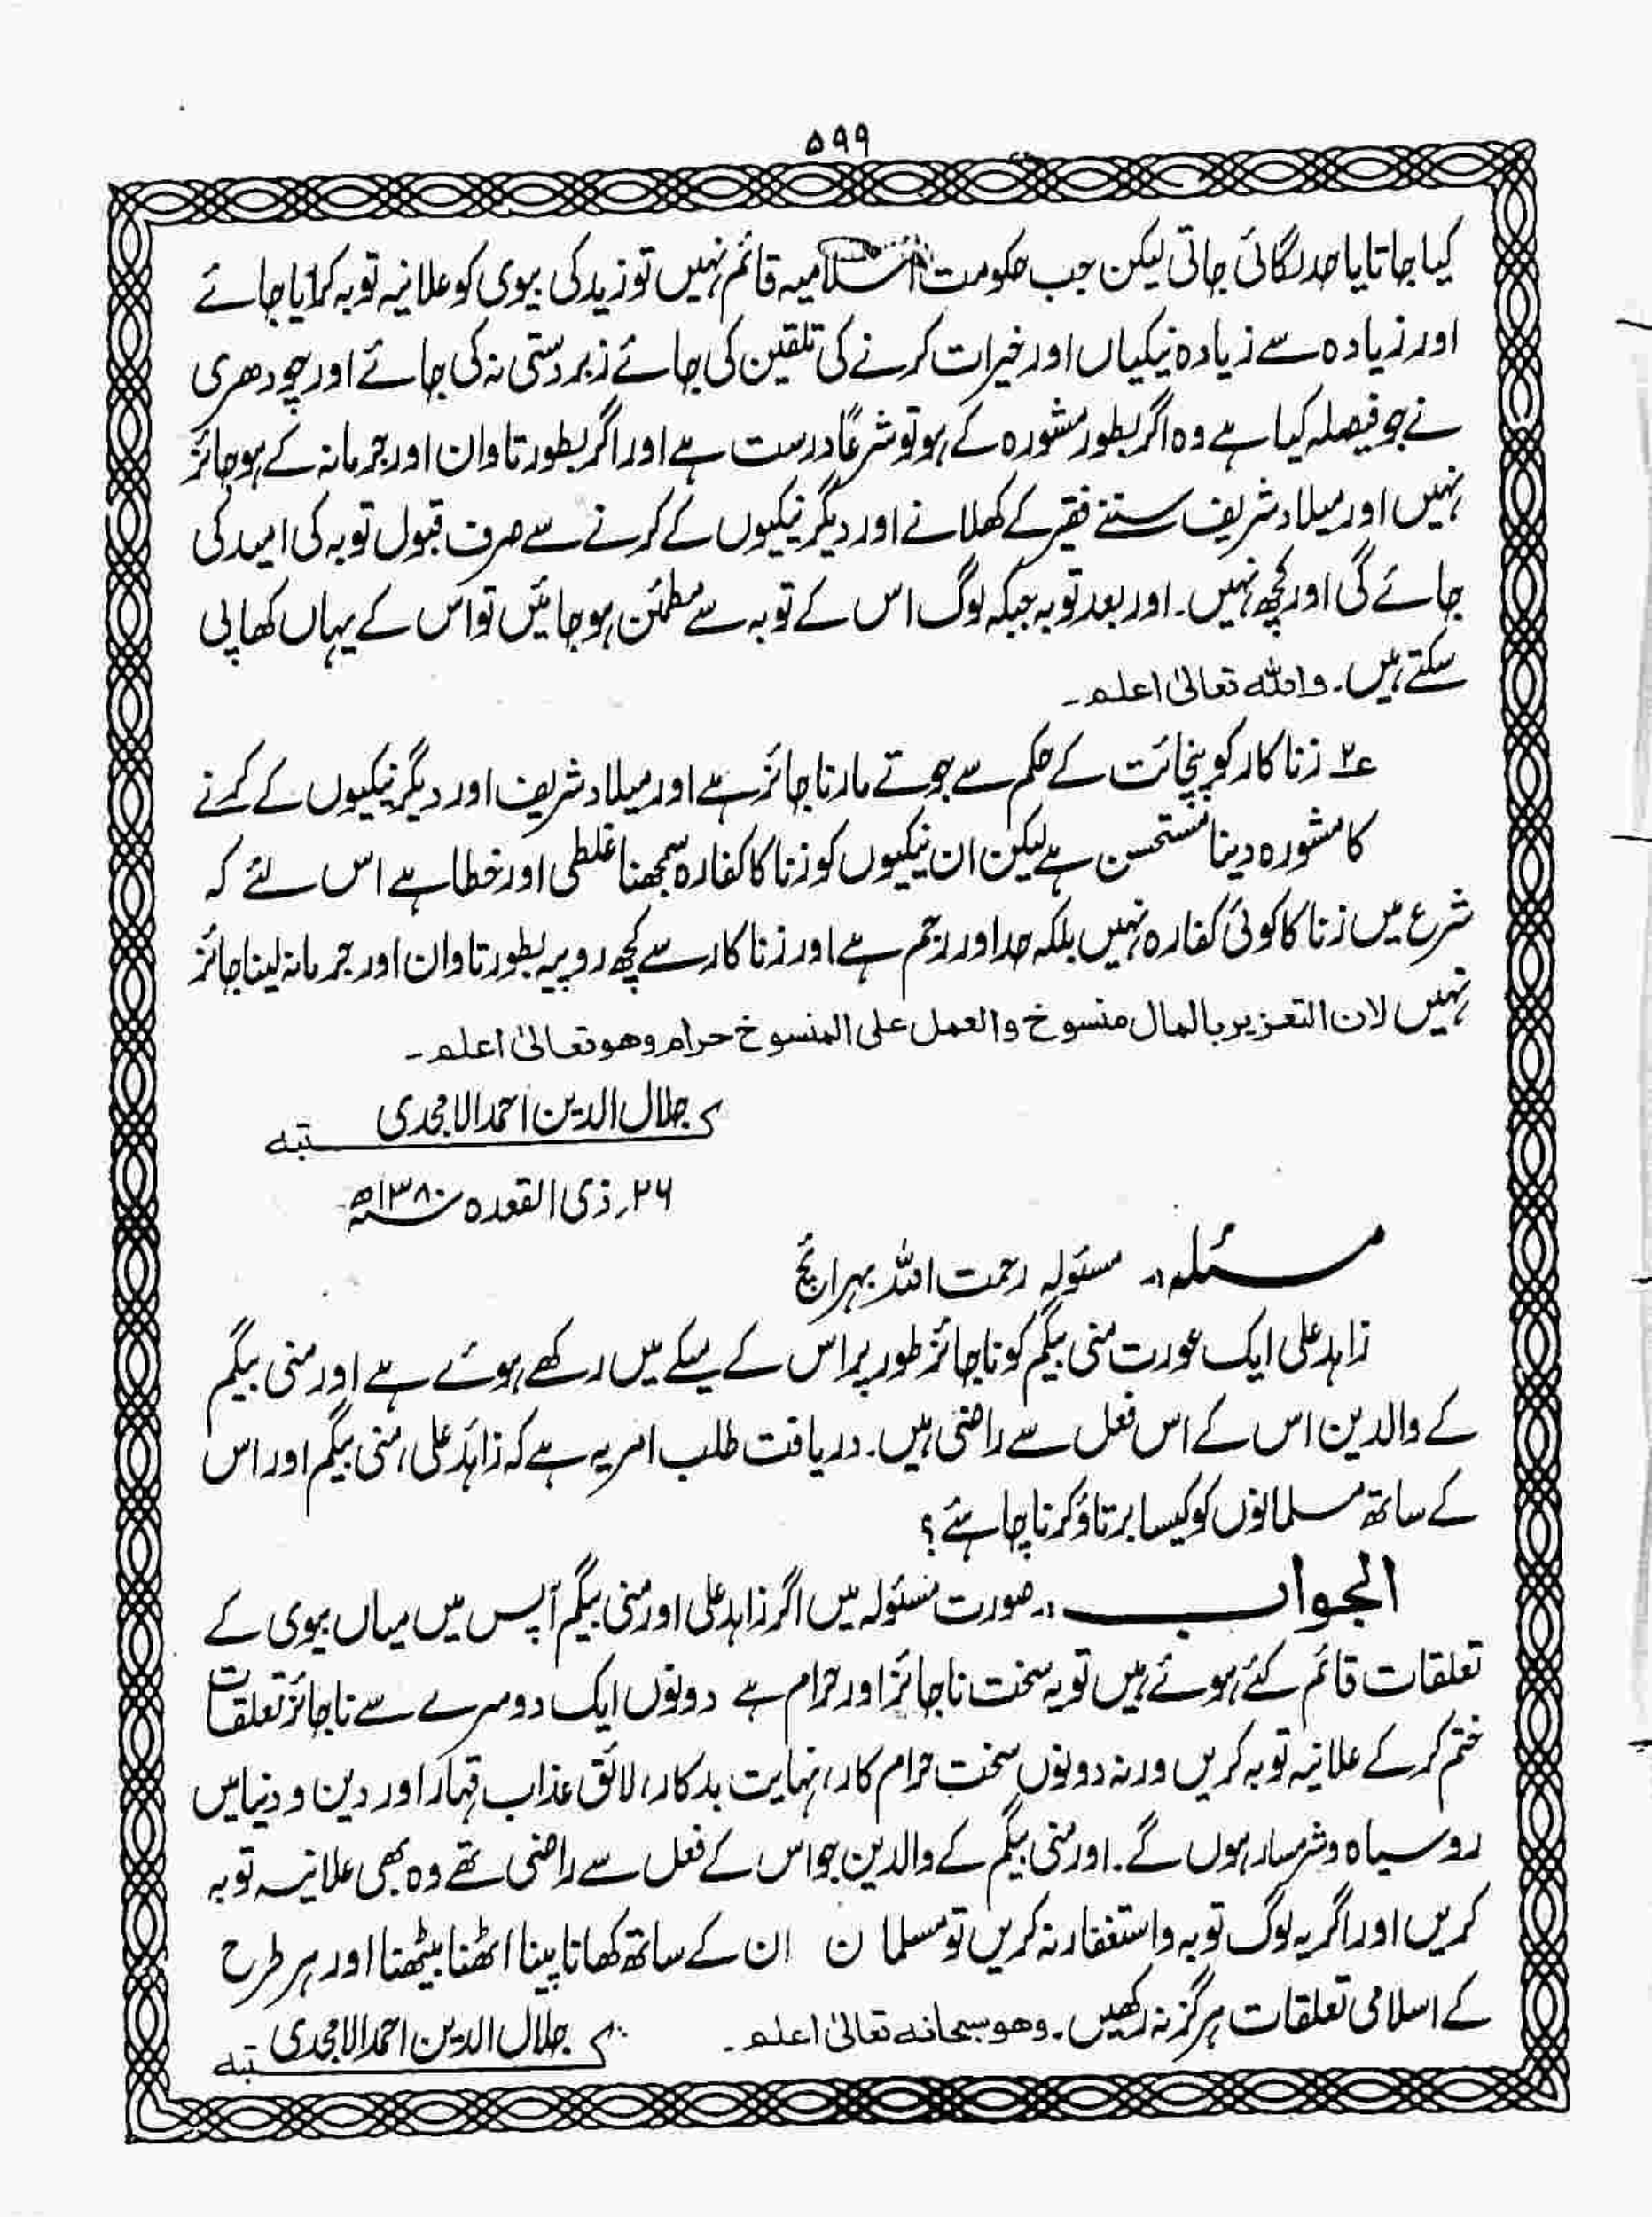 ۵۹۹
کیا جاتا یا حد لگائی جاتی لیکن جب حکومت اسلامیہ قائم نہیں تو زید کی بیوی کو علانیہ توبہ کرایا جائے
اور زیادہ سے زیادہ نیکیاں اور خیرات کرنے کی تلقین کی جائے زبردستی نہ کی جائے اور چودھری
نے جو فیصلہ کیا ہے وہ اگر بطور مشورہ کے ہو تو شرعًا درست ہے اور اگر بطور تاوان اور جرمانہ کے ہو جائز
نہیں اور میلاد شریف سننے فقیر کے کھلانے اور دیگر نیکیوں کے کرنے سے صرف قبول توبہ کی امید کی
جائے گی اور کچھ نہیں۔ اور بعد توبہ جبکہ لوگ اس کے توبہ سے مطمئن ہو جائیں تو اس کے یہاں کھا پی
سکتے ہیں۔ واللہ تعالیٰ اعلم۔
ع۲ زنا کار کو پنچائت کے حکم سے جوتے مارنا جائز ہے اور میلاد شریف اور دیگر نیکیوں کے کرنے
کا مشورہ دینا مستحسن ہے لیکن ان نیکیوں کو زنا کا کفارہ سمجھنا غلطی اور خطا ہے اس لئے کہ
شرع میں زنا کا کوئی کفارہ نہیں بلکہ حد اور رجم ہے اور زنا کار سے کچھ روپیہ بطور تاوان اور جرمانہ لینا جائز
نہیں لان التعزیر بالمال منسوخ والعمل علی المنسوخ حرام وھو تعالیٰ اعلم۔
کتبہ جلال الدین احمد الامجدی
۲۶؍ ذی القعدہ ۱۳۸۰ھ
مسئلہ:۔ مسئولہ رحمت اللہ بہرائچ
زاہد علی ایک عورت منی بیگم کو ناجائز طور پر اس کے میکے میں رکھے ہوئے ہے اور منی بیگم
کے والدین اس کے اس فعل سے راضی ہیں۔ دریافت طلب امر یہ ہے کہ زاہد علی، منی بیگم اور اس
کے ساتھ مسلمانوں کو کیسا برتاؤ کرنا چاہئے؟
الجواب:۔ صورت مسئولہ میں اگر زاہد علی اور منی بیگم آپس میں میاں بیوی کے
تعلقات قائم کئے ہوئے ہیں تو یہ سخت ناجائز اور حرام ہے دونوں ایک دوسرے سے ناجائز تعلقات
ختم کر کے علانیہ توبہ کریں ورنہ دونوں سخت حرام کار، نہایت بدکار، لائق عذاب قہار اور دین و دنیا میں
روسیاہ و شرمسار ہوں گے۔ اور منی بیگم کے والدین جو اس کے فعل سے راضی تھے وہ بھی علانیہ توبہ
کریں اور اگر یہ لوگ توبہ و استغفار نہ کریں تو مسلمان ان کے ساتھ کھانا پینا اٹھنا بیٹھنا اور ہر طرح
کے اسلامی تعلقات ہرگز نہ رکھیں۔ وھو سبحانہ تعالیٰ اعلم۔ کتبہ جلال الدین احمد الامجدی